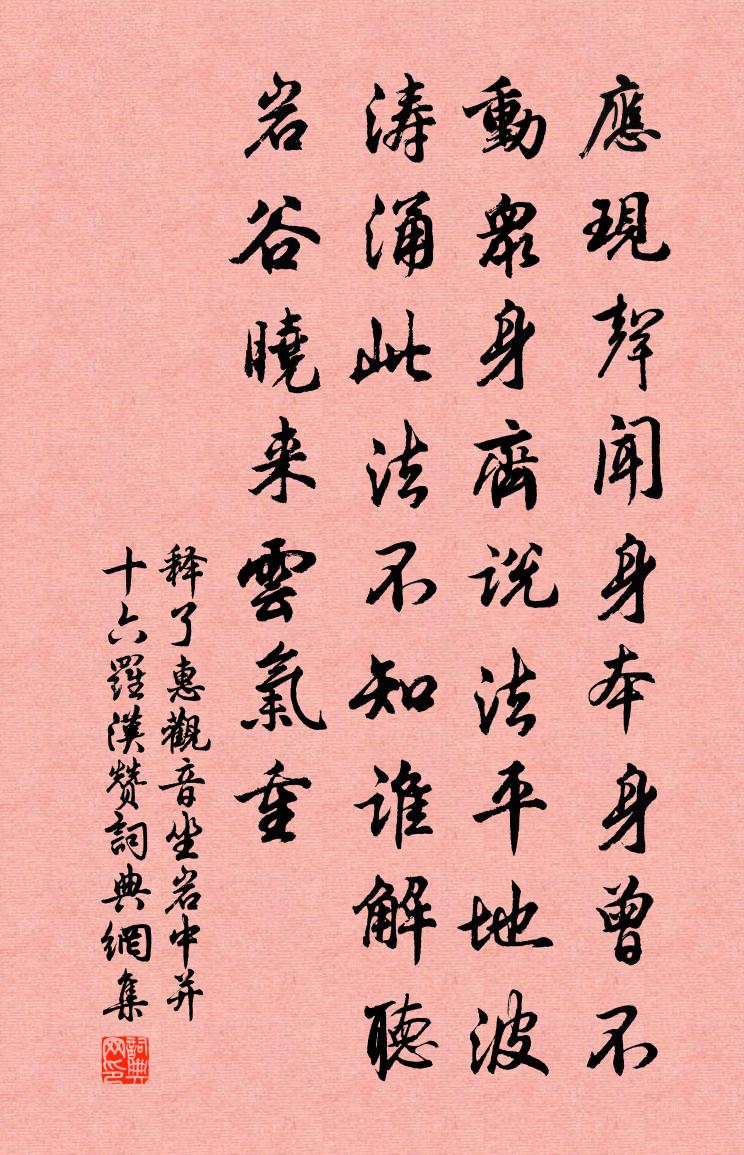 應現聲聞身本身曽不
動衆身齊説法平地波
涛涌此法不知誰解聽
岩谷曉来雲氣重
释了惠觀音坐岩中并
十六羅漢赞詞典網集
詞典网印